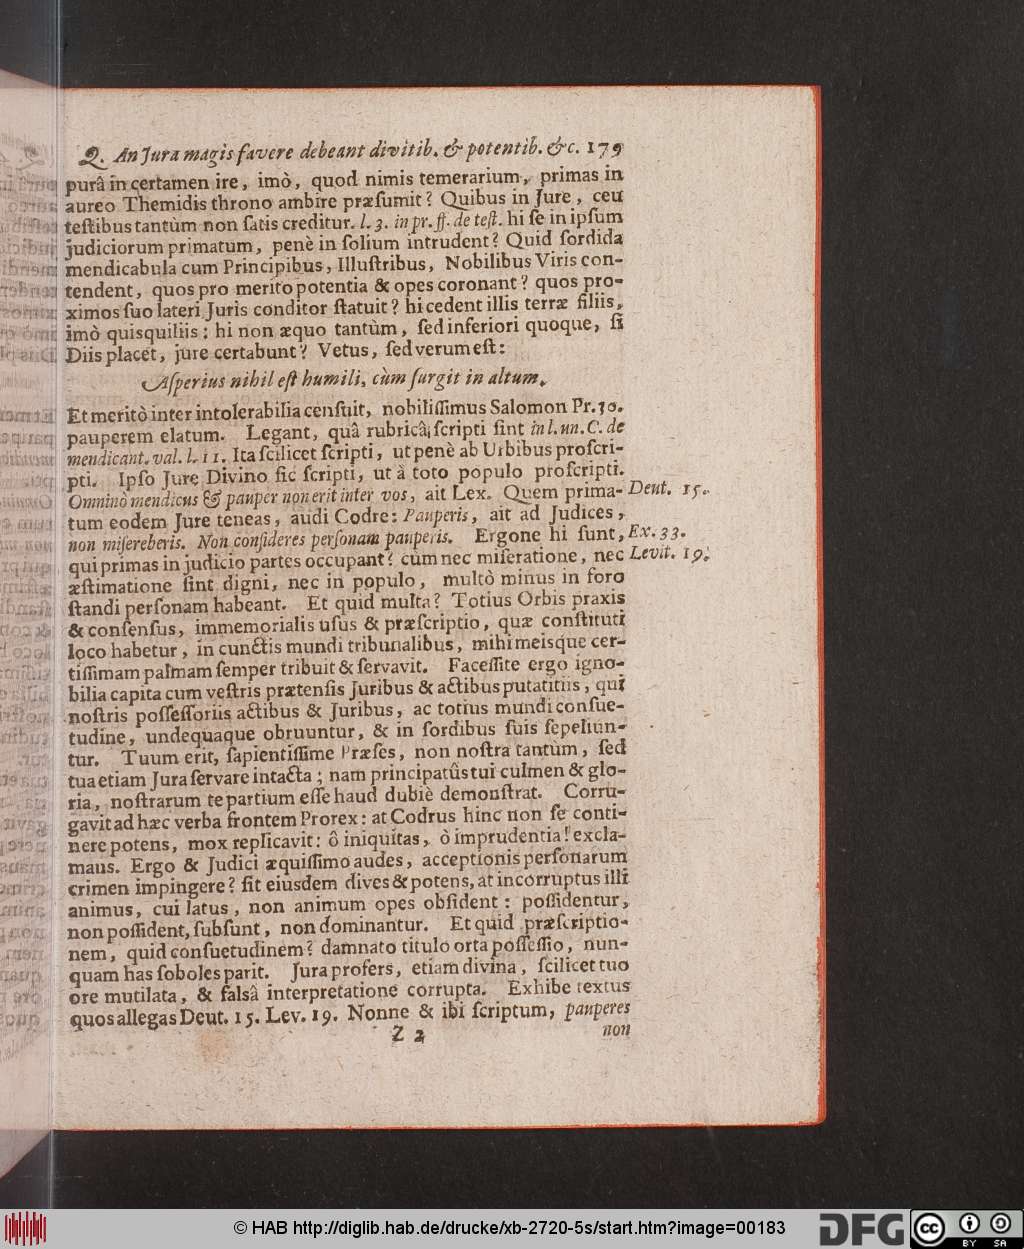 Q. An Jura magis favere debeant divitib. & potentib. &c. 179
purâ in certamen ire, imò, quod nimis temerarium, primas in
aureo Themidis throno ambire præſumit? Quibus in Jure, ceu
teſtibus tantùm non ſatis creditur. l. 3. in pr. ff. de teſt. hi ſe in ipſum
judiciorum primatum, penè in ſolium intrudent? Quid ſordida
mendicabula cum Principibus, Illuſtribus, Nobilibus Viris con-
tendent, quos pro merito potentia & opes coronant? quos pro-
ximos ſuo lateri Juris conditor ſtatuit? hi cedent illis terræ filiis,
imò quisquiliis: hi non æquo tantùm, ſed inferiori quoque, ſi
Diis placet, jure certabunt? Vetus, ſed verum eſt:
Aſperius nihil eſt humili, cùm ſurgit in altum.
Et meritò inter intolerabilia cenſuit, nobiliſſimus Salomon Pr. 30.
pauperem elatum. Legant, quâ rubricâ ſcripti ſint in l. un. C. de
mendicant. val. l. 11. Ita ſcilicet ſcripti, ut penè ab Urbibus proſcri-
pti. Ipſo Jure Divino ſic ſcripti, ut à toto populo proſcripti.
Omninò mendicus & pauper non erit inter vos, ait Lex. Quem prima- Deut. 15.
tum eodem Jure teneas, audi Codre: Pauperis, ait ad Judices,
non miſereberis. Non conſideres perſonam pauperis. Ergone hi ſunt, Ex. 33.
qui primas in judicio partes occupant? cùm nec miſeratione, nec Levit. 19.
æſtimatione ſint digni, nec in populo, multò minus in foro
ſtandi perſonam habeant. Et quid multa? Totius Orbis praxis
& conſenſus, immemorialis uſus & præſcriptio, quæ conſtituti
loco habetur, in cunctis mundi tribunalibus, mihi meisque cer-
tiſſimam palmam ſemper tribuit & ſervavit. Faceſſite ergo igno-
bilia capita cum veſtris prætenſis Juribus & actibus putatitiis, qui
noſtris poſſeſſoriis actibus & Juribus, ac totius mundi conſue-
tudine, undequaque obruuntur, & in ſordibus ſuis ſepeliun-
tur. Tuum erit, ſapientiſſime Præſes, non noſtra tantùm, ſed
tua etiam Jura ſervare intacta; nam principatûs tui culmen & glo-
ria, noſtrarum te partium eſſe haud dubiè demonſtrat. Corru-
gavit ad hæc verba frontem Prorex: at Codrus hinc non ſe conti-
nere potens, mox replicavit: ô iniquitas, ò imprudentia! excla-
mans. Ergo & Judici æquiſſimo audes, acceptionis perſonarum
crimen impingere? ſit eiusdem dives & potens, at incorruptus illi
animus, cui latus, non animum opes obſident: poſſidentur,
non poſſident, ſubſunt, non dominantur. Et quid præſcriptio-
nem, quid conſuetudinem? damnato titulo orta poſſeſſio, nun-
quam has ſoboles parit. Jura profers, etiam divina, ſcilicet tuo
ore mutilata, & falsâ interpretatione corrupta. Exhibe textus
quos allegas Deut. 15. Lev. 19. Nonne & ibi ſcriptum, pauperes
Z 2 non
© HAB http://diglib.hab.de/drucke/xb-2720-5s/start.htm?image=00183
DFG
cc BY SA